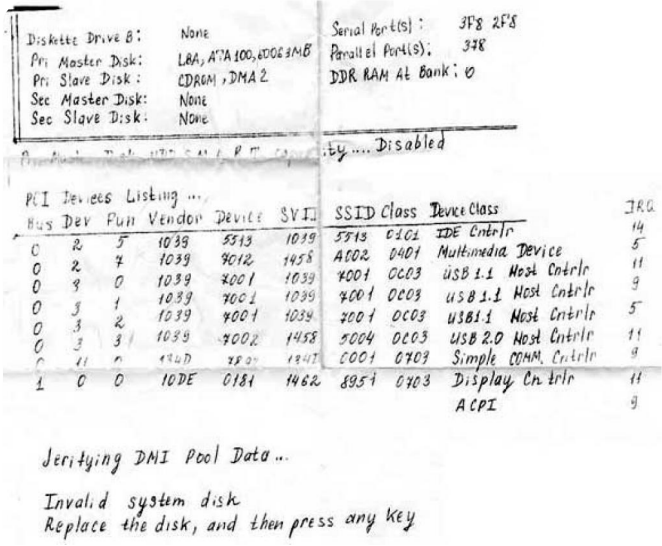 Diskette Drive B: None Serial Port(s): 3F8 2F8
Pri Master Disk: LBA, ATA100, 60063MB Parallel Port(s): 378
Pri Slave Disk: CDROM, DMA2 DDR RAM At Bank: 0
Sec Master Disk: None
Sec Slave Disk: None
Disabled
PCI Devices Listing ...
Bus Dev Fun Vendor Device SVID SSID Class Device Class IRQ
0 2 5 1039 5513 1039 5513 0101 IDE Cntrlr 14
0 2 7 1039 7012 1458 A002 0401 Multimedia Device 5
0 3 0 1039 7001 1039 7001 0C03 USB 1.1 Host Cntrlr 11
0 3 1 1039 7001 1039 7001 0C03 USB 1.1 Host Cntrlr 9
0 3 2 1039 7001 1039 7001 0C03 USB1.1 Host Cntrlr 5
0 3 3 1039 7002 1458 5004 0C03 USB 2.0 Host Cntrlr 11
0 11 0 134D 134D 0001 0703 Simple COMM. Cntrlr 9
1 0 0 10DE 0181 1462 8951 0703 Display Cntrlr 11
ACPI 9
Jerifying DMI Pool Data ...
Invalid system disk
Replace the disk, and then press any key